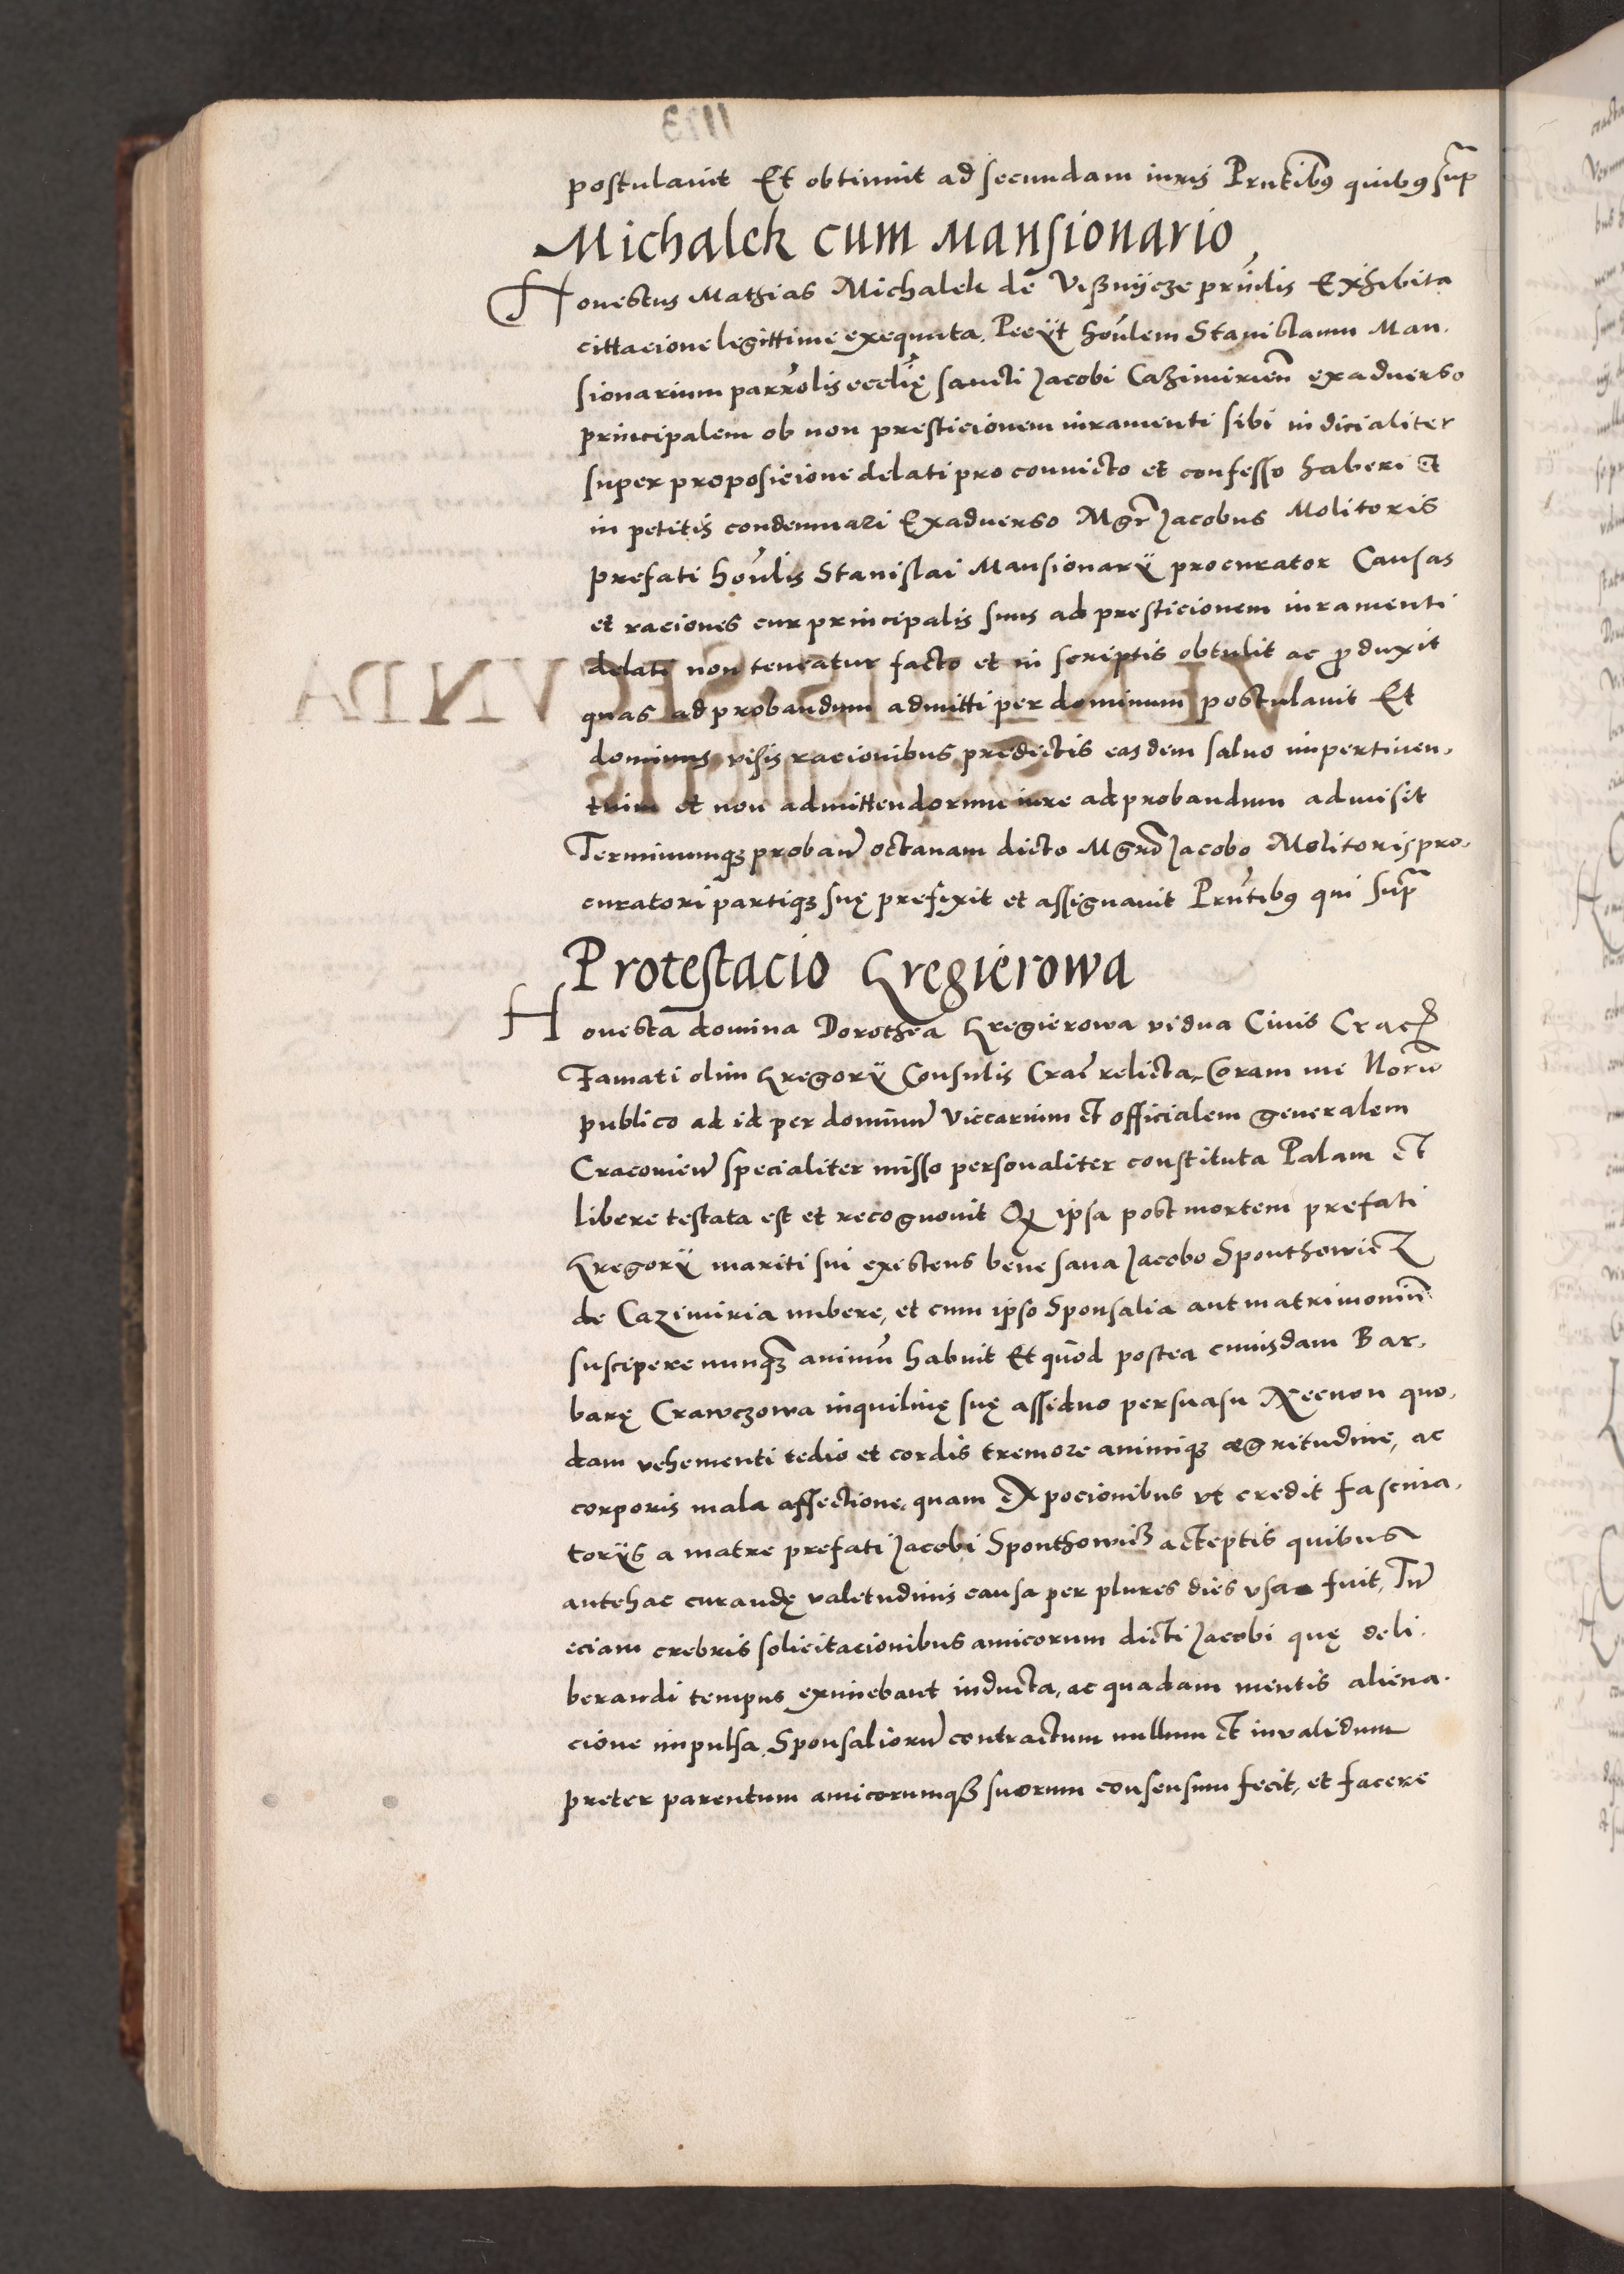 postulavit Et obtinuit ad secundam iuris Prntibus quibus supra
Michalek cum Mansionario
Honestus Mathias Michalek de Vißnijcze prinlis Exhibita
cittacione legittime exequuta. Peeÿt hon̄lem Stanislaum Man-
sionarium parrolis eccliȩ sancti Jacobi Cazimirien̄ ex aduerso
principalem ob non presticionem iuramenti sibi iudicialiter
super proposicione delati pro conuicto et confesso haberi Et
in petitis condemnari Exaduerso Mgr̄ Jacobus Molitoris
prefati hon̄lis Stanislai Mansionarÿ procurator Causas
et raciones cur principalis suus ad presticionem iuramenti
delati non teneatur facto et in scriptis obtulit ac produxit
quas ad probandum admitti per dominum postulauit Et
dominus visis racionibus predictis easdem saluo impertinen-
tium et non admittendorum iure ad probandum admisit
Terminumqȝ proban̄ octauam dicto Mgr̄o Jacobo Molitoris pro-
curatori partiqȝ suȩ prefixit et assignauit Prn̄tibus qui supra
Protestacio Gregierowa
Honesta domina Dorothea Gregierowa vidua Ciuis Crac̄
Famati olim Gregorÿ Consulis Crac̄ relicta, Coram me Nor̄io
publico ad id per dominum̄ Viccarium Et officialem generalem
Cracouien̄ specialiter misso personaliter constituta Palam Et
libere testata est et recognouit Qꝫ ipsa post mortem prefati
Gregorÿ mariti sui existens bene sana Jacobo Sponthowicz
de Cazimiria nubere, et cum ipso Sponsalia aut matrimoniu̅
suscipere nunqȝ animu̅ habuit Et quod postea cuiusdam Bar-
barȩ Crawczowa inquilinȩ suȩ assiduo persuasu Necnon quo-
dam vehementi tedio et cordis tremore animiqȝ ægritudine, ac
corporis mala affectione, quam Ex pocionibus vt credit fascina-
torÿs a matre prefati Jacobi Sponthowicz acceptis quibus
antehac curandȩ valetudinis causa per plures dies vsa fuit, Tu̅
eciam crebris solicitacionibus amicorum dicti Jacobi quȩ deli-
berandi tempus eximebant inducta, ac quadam mentis aliena-
cione impulsa. Sponsalioru̅ contractum nullum Et inualidum
preter parentum amicorumqȝ suorum consensum fecit, et facere